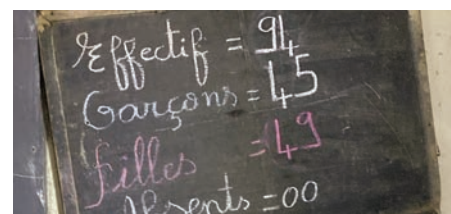 Effectif = 94
Garçons = 45
filles = 49
Absents = 00